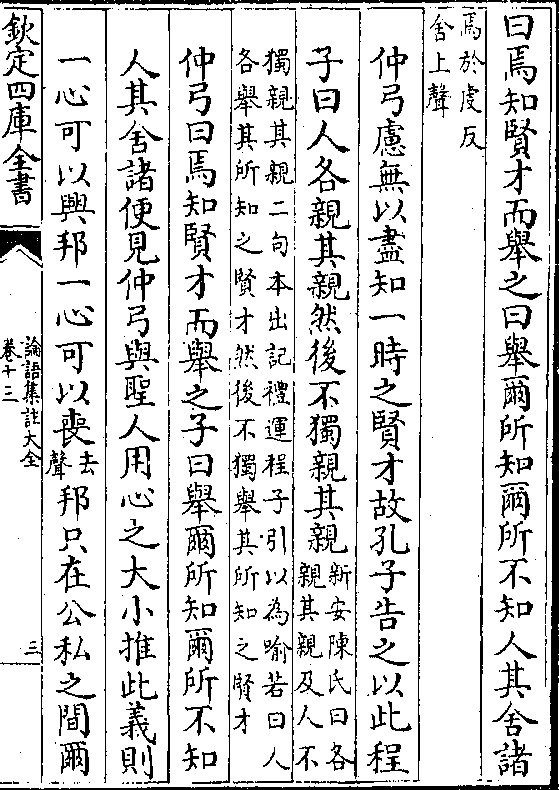 曰焉知賢才而舉之曰舉爾所知爾所不知人其舍諸
焉於虔反
舍上聲
仲弓慮無以盡知一時之賢才故孔子告之以此程
子曰人各親其親然後不獨親其親
新安陳氏曰各
親其親及人不
獨親其親二句本出記禮運程子引以為喻若曰人
各舉其所知之賢才然後不獨舉其所知之賢才
仲弓曰焉知賢才而舉之子曰舉爾所知爾所不知
人其舍諸便見仲弓與聖人用心之大小推此義則
一心可以興邦一心可以喪
去
聲
邦只在公私之間爾
欽定四庫全書
論語集註大全
卷十三
三